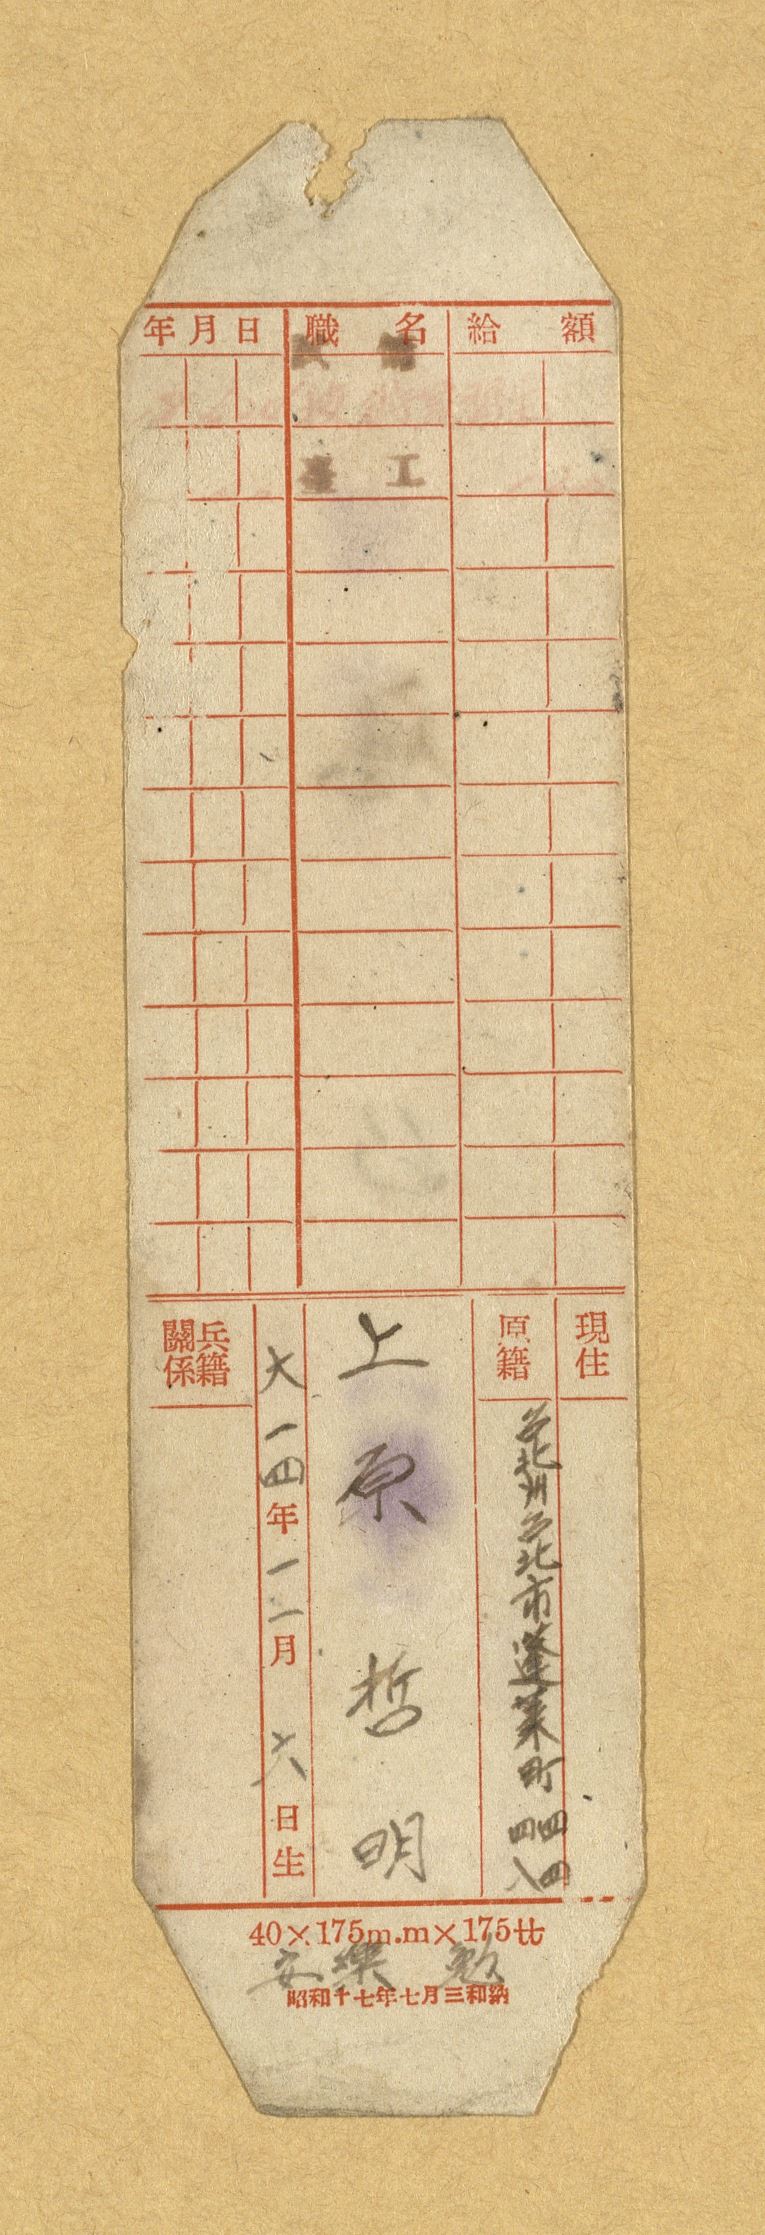 年月日 職名 給額
工
現住
原籍
台北州台北市蓬莱町
四四
八四
上原哲明
大一四年一一月六日生
兵籍關係
40×175m.m×175廿
安樂
昭和十七年七月三和納